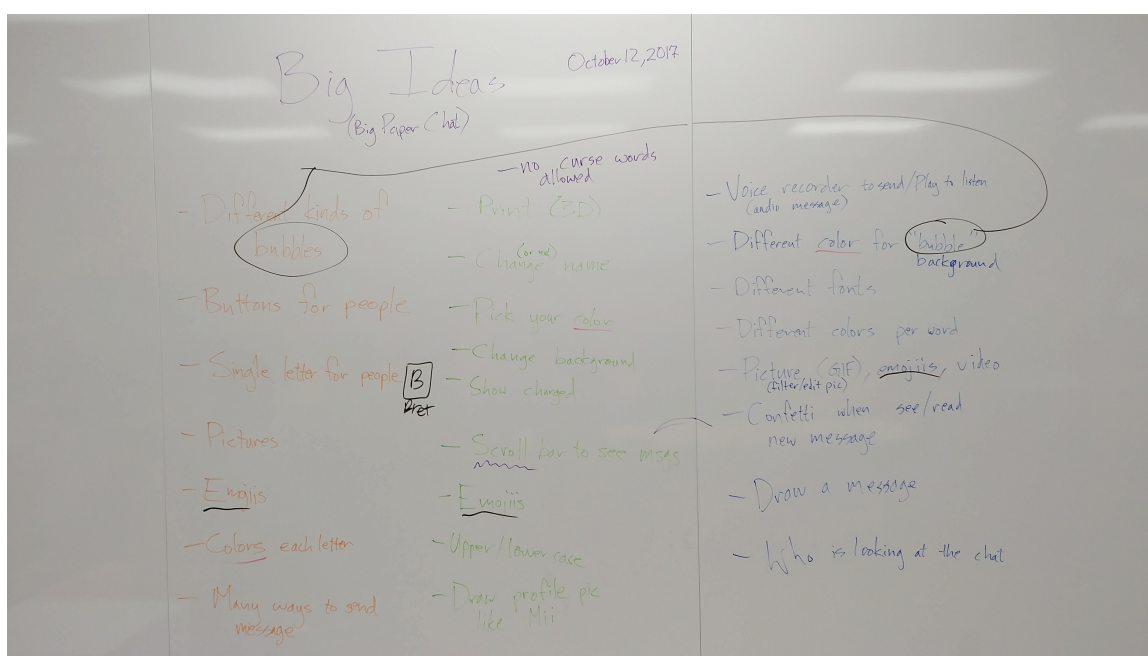 Big Ideas
October 12, 2017
(Big Paper Chat)
- Different kinds of
bubbles
- Buttons for people
- Single letter for people
B
Bret
- Pictures
- Emojis
- Colors each letter
- Many ways to send
message
- no curse words
allowed
- Print (3D)
(or me)
- Change name
- Pick your color
- Change background
- Show changed
- Scroll bar to see msgs
- Emojiis
- Upper/lower case
- Draw profile pic
like Mii
- Voice recorder to send/Play to listen
(audio message)
- Different color for "bubble"
background
- Different fonts
- Different colors per word
- Picture (GIF), emojiis, video
(filter/edit pic)
- Confetti when see/read
new message
- Draw a message
- Who is looking at the chat